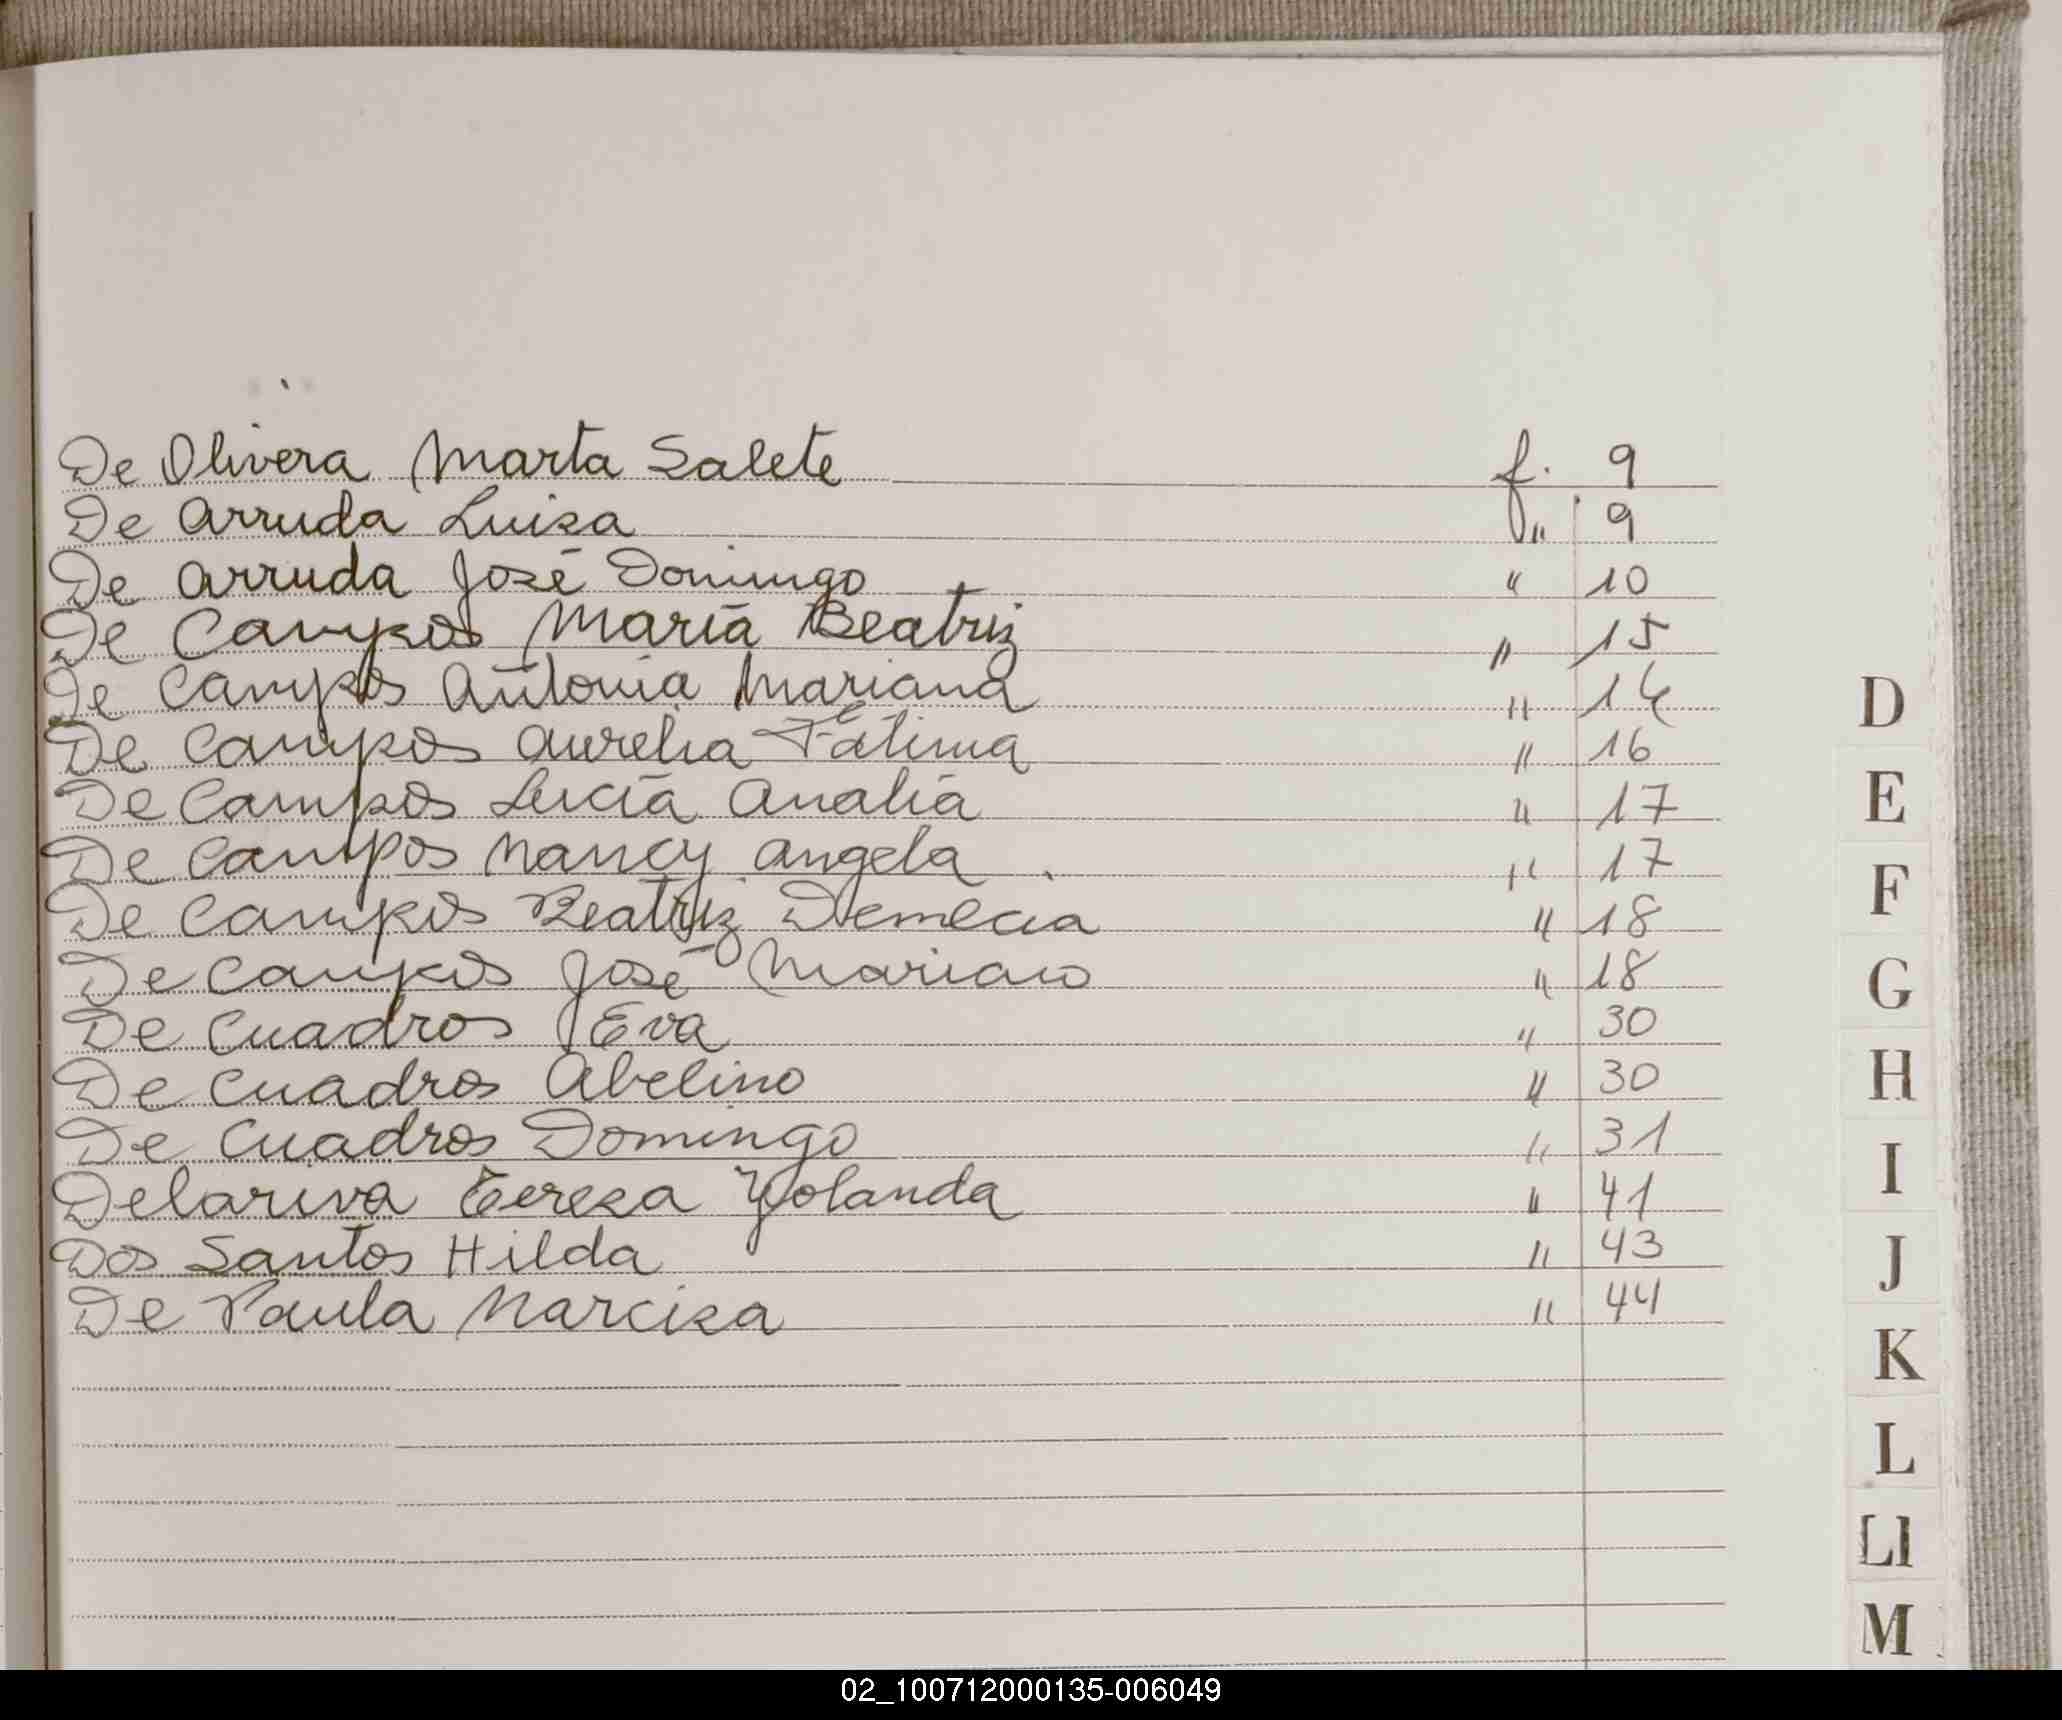 De Olivera Marta Salete f. 9
De Arruda Luisa " 9
De Arruda José Domingo " 10
De Campos María Beatriz " 15
De Campos Antonia Mariana " 14
De Campos Aurelia Fátima " 16
De Campos Lucía Analía " 17
De Campos Nancy Angela " 17
De Campos Beatriz Demecia " 18
De Campos José Mariano " 18
De Cuadros Eva " 30
De Cuadros Abelino " 30
De Cuadros Domingo " 31
Delariva Teresa Yolanda " 41
Dos Santos Hilda " 43
De Paula Narcisa " 44
D
E
F
G
H
I
J
K
L
Ll
M
02_100712000135-006049